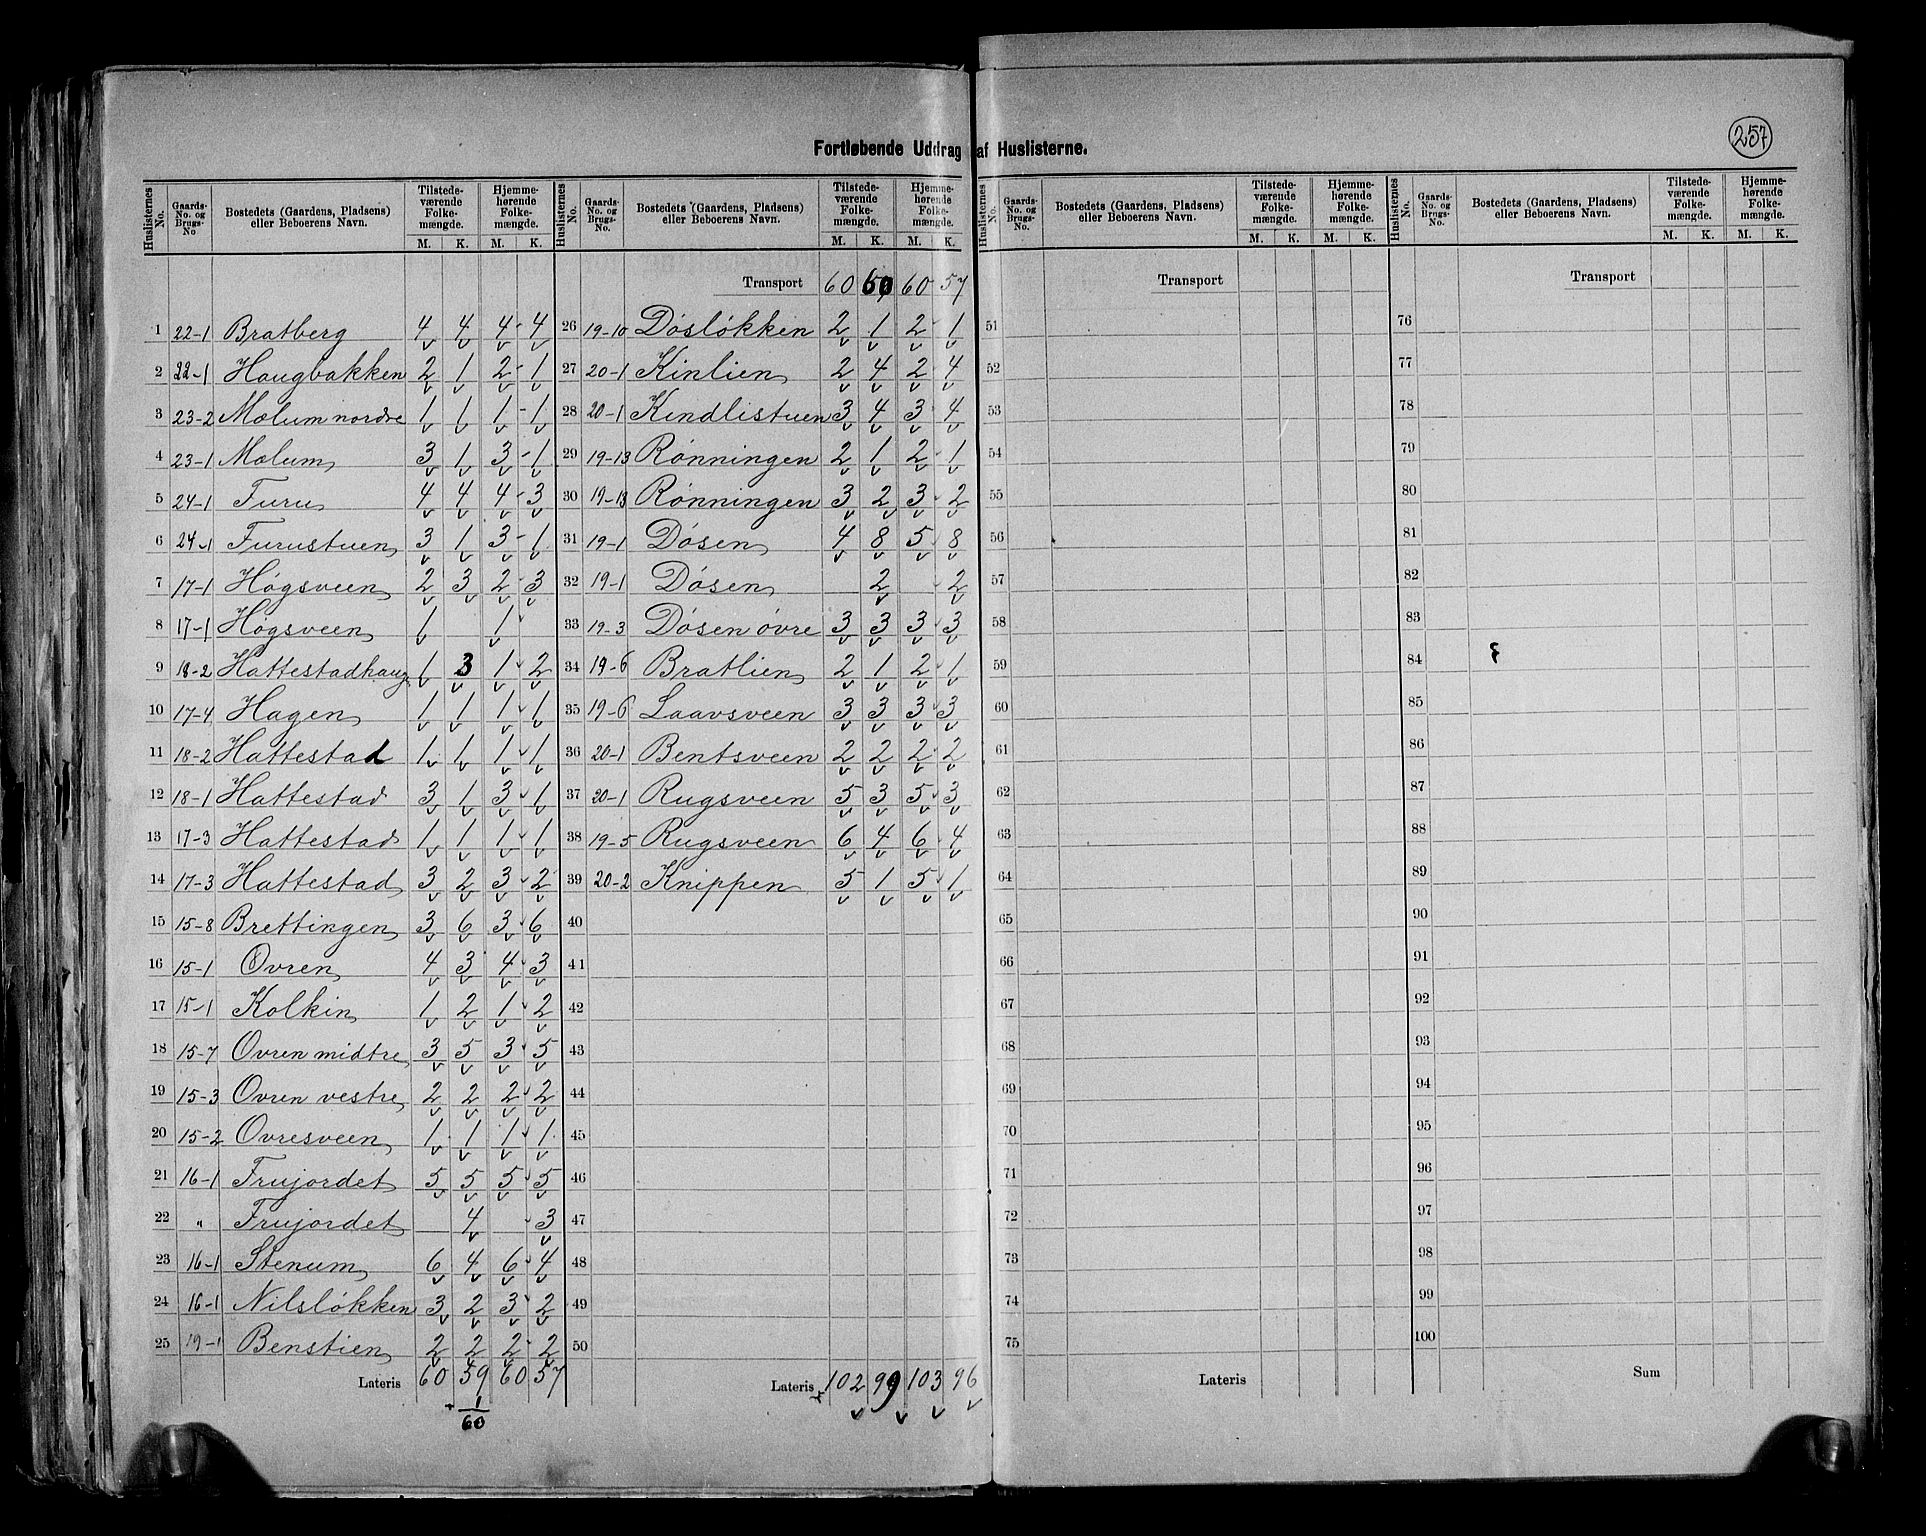 257
Fortløbende Uddrag af Huslisterne.
Huslisternes No. | Gaards-No. og Brugs-No | Bostedets (Gaardens, Pladsens) eller Beboerens Navn. | Tilstedeværende Folkemængde. M. K. | Hjemmehørende Folkemængde. M. K.
1 22-1 Bratberg 4 4 4 4
2 22-1 Haugbakken 2 1 2 1
3 23-2 Mælum nordre 1 1 1 1
4 23-1 Mælum 3 1 3 1
5 24-1 Furu 4 4 4 3
6 24-1 Furustuen 3 1 3 1
7 17-1 Høgsveen 2 3 2 3
8 17-1 Høgsveen 1 1
9 18-2 Hattestadhaug 1 3 1 2
10 17-4 Hagen 1 1 1 1
11 18-2 Hattestad 1 1 1 1
12 18-1 Hattestad 3 1 3 1
13 17-3 Hattestad 1 1 1 1
14 17-3 Hattestad 3 2 3 2
15 15-8 Brettingen 3 6 3 6
16 15-1 Ovren 4 3 4 3
17 15-1 Kolkin 1 2 1 2
18 15-7 Ovren midtre 3 5 3 5
19 15-3 Ovren vestre 2 2 2 2
20 15-2 Ovresveen 1 1 1 1
21 16-1 Frujordet 5 5 5 5
22 " Frujordet 4 3
23 16-1 Stenum 6 4 6 4
24 16-1 Nilsløkken 3 2 3 2
25 19-1 Benstien 2 2 2 2
Lateris 60 59 60 57
+ 1
60
Huslisternes No. | Gaards-No. og Brugs-No. | Bostedets (Gaardens, Pladsens) eller Beboerens Navn. | Tilstedeværende Folkemængde. M. K. | Hjemmehørende Folkemængde. M. K.
Transport 60 60 60 57
26 19-10 Døsløkken 2 1 2 1
27 20-1 Kinlien 2 4 2 4
28 20-1 Kindlistuen 3 4 3 4
29 19-13 Rønningen 2 1 2 1
30 19-13 Rønningen 3 2 3 2
31 19-1 Døsen 4 8 5 8
32 19-1 Døsen 2 2
33 19-3 Døsen øvre 3 3 3 3
34 19-6 Bratlien 2 1 2 1
35 19-6 Laavsveen 3 3 3 3
36 20-1 Bentsveen 2 2 2 2
37 20-1 Rugsveen 5 3 5 3
38 19-5 Rugsveen 6 4 6 4
39 20-2 Knippen 5 1 5 1
40
41
42
43
44
45
46
47
48
49
50
Lateris 102 99 103 96
Huslisternes No. | Gaards-No. og Brugs-No. | Bostedets (Gaardens, Pladsens) eller Beboerens Navn. | Tilstedeværende Folkemængde. M. K. | Hjemmehørende Folkemængde. M. K.
Transport
51
52
53
54
55
56
57
58
59
60
61
62
63
64
65
66
67
68
69
70
71
72
73
74
75
Lateris
Huslisternes No. | Gaards-No. og Brugs-No. | Bostedets (Gaardens, Pladsens) eller Beboerens Navn. | Tilstedeværende Folkemængde. M. K. | Hjemmehørende Folkemængde. M. K.
Transport
76
77
78
79
80
81
82
83
84
85
86
87
88
89
90
91
92
93
94
95
96
97
98
99
100
Sum